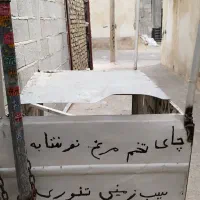 چای تخم مرغ نوشابه
سیب زمینی تنوری